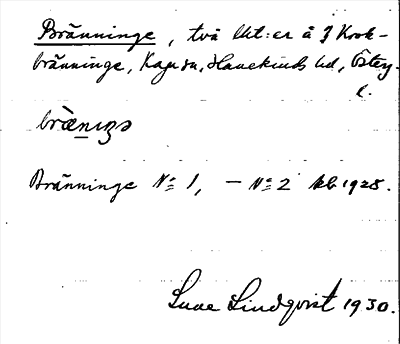 Bränninge, två lht:er å 3 Krok-
bränninge, Kaga sn, Hanekinds hd, Österg.
l.
brænigs
Bränninge No 1, – No 2 kb 1928.
Sune Lindqvist 1930.